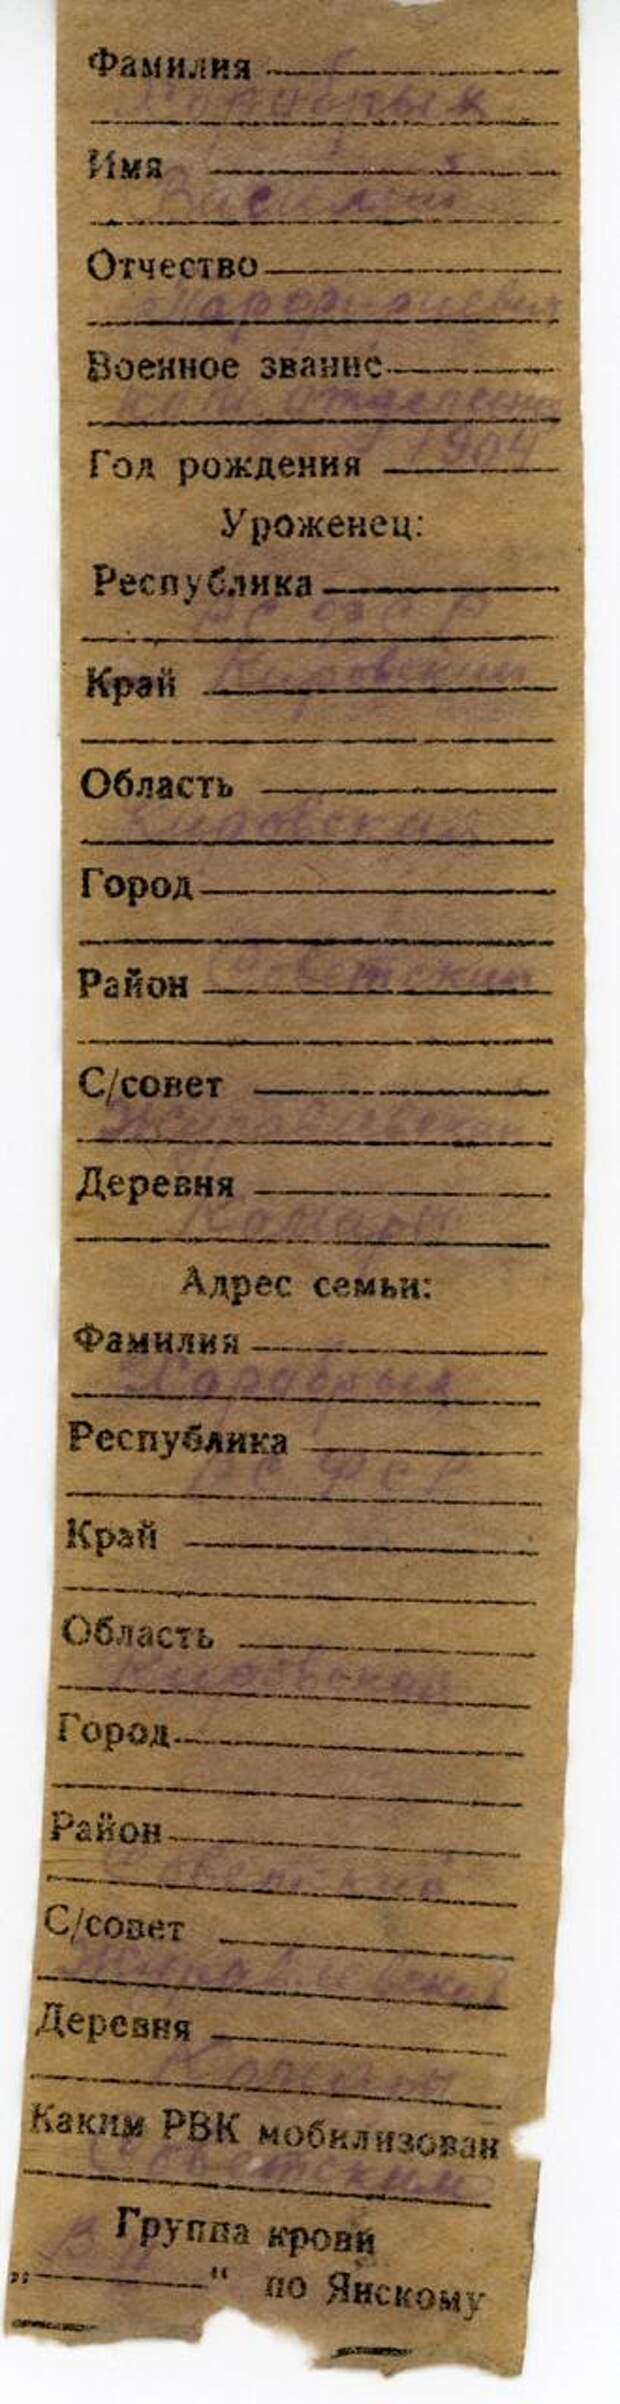 Фамилия
Хорабрых
Имя
Василий
Отчество
Военное звание
ком отделения
1904
Год рождения
Уроженец:
Республика
РСФСР
Кировский
Край
Область
Кировская
Город
Советский
Район
С/совет
Журавлевский
Деревня
Комары
Адрес семьи:
Фамилия
Хорабрых
Республика
РСФСР
Край
Область
Кировская
Город
Район
Советский
С/совет
Журавлевский
Деревня
Комары
Каким РВК мобилизован
Советским
Группа крови
„ “ по Янскому